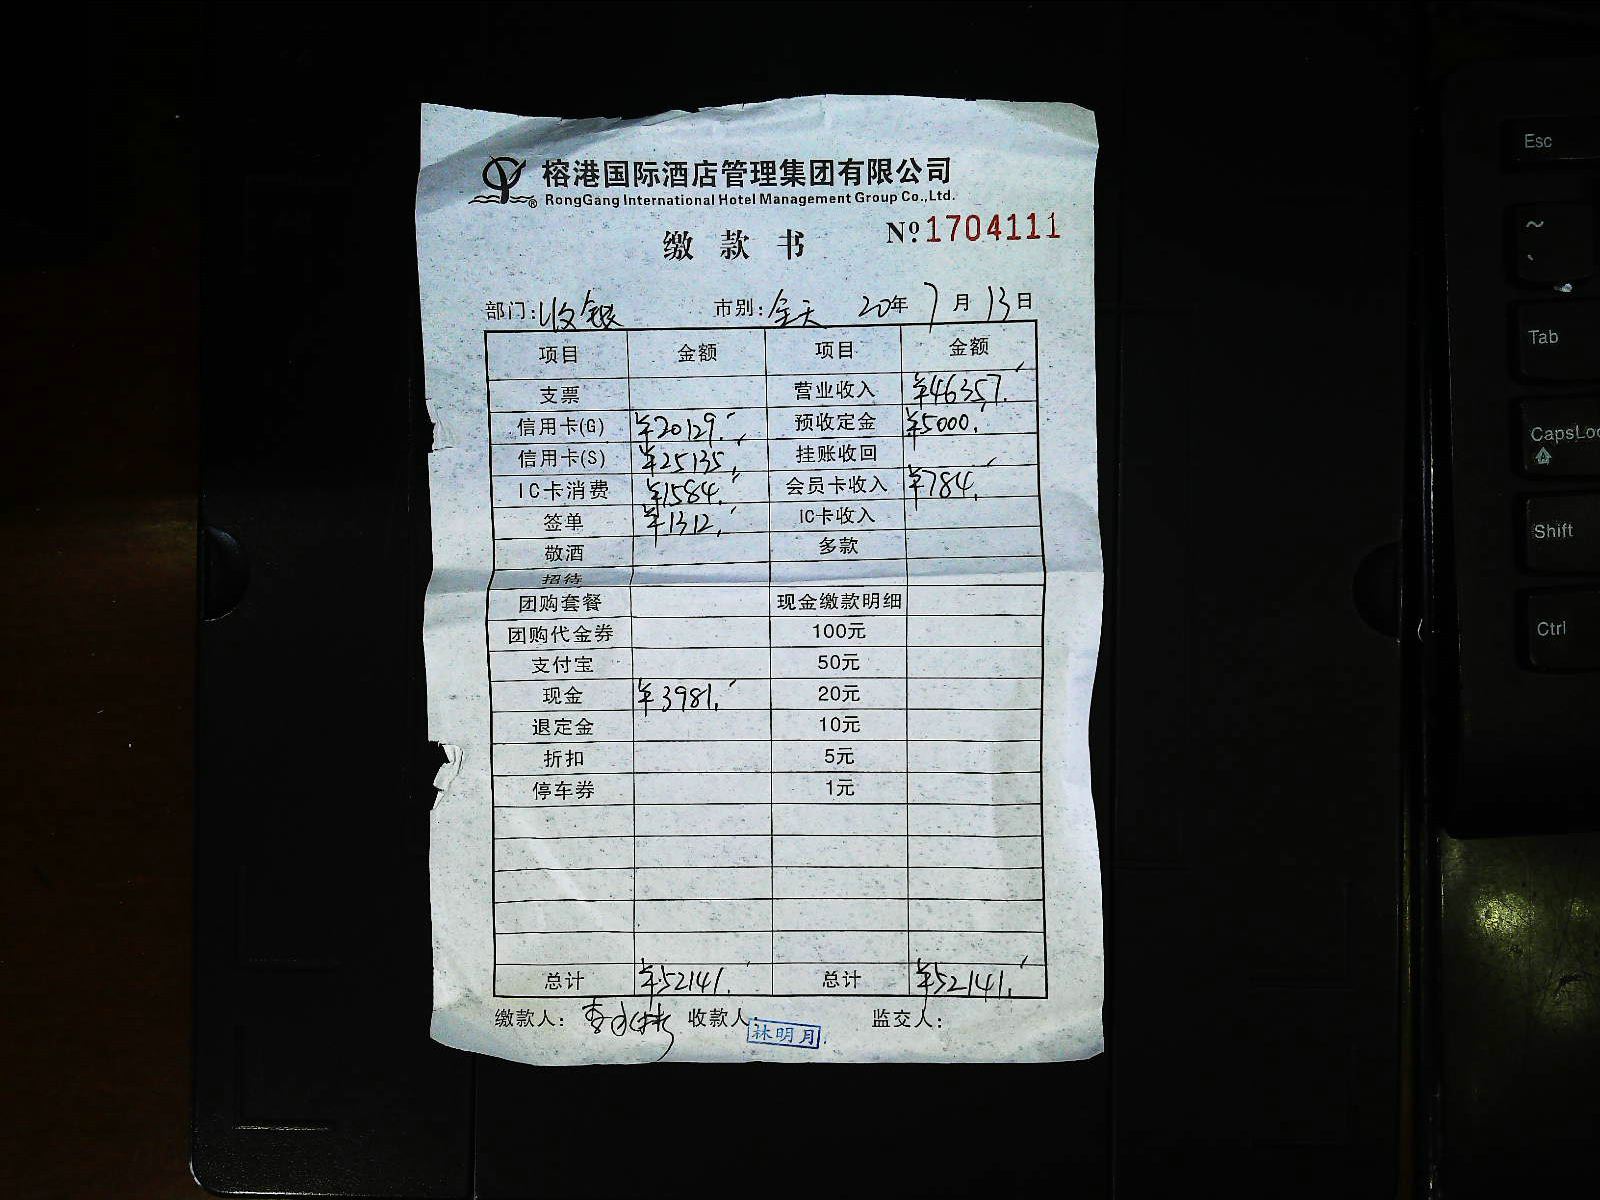 榕港国际酒店管理集团有限公司
RongGang International Hotel Management Group Co.,Ltd.
缴款书 Nº1704111
部门:收银 市别:全天 20年7月13日
项目 金额 项目 金额
支票 营业收入 ¥46357.
信用卡(G) ¥20129. 预收定金 ¥5000.
信用卡(S) ¥25135. 挂账收回
IC卡消费 ¥1584. 会员卡收入 ¥784.
签单 ¥1312. IC卡收入
敬酒 多款
招待
团购套餐 现金缴款明细
团购代金券 100元
支付宝 50元
现金 ¥3981. 20元
退定金 10元
折扣 5元
停车券 1元
总计 ¥52141. 总计 ¥52141.
缴款人: 收款人: 林明月 监交人:
Esc
~
`
Tab
CapsLoc
Shift
Ctrl